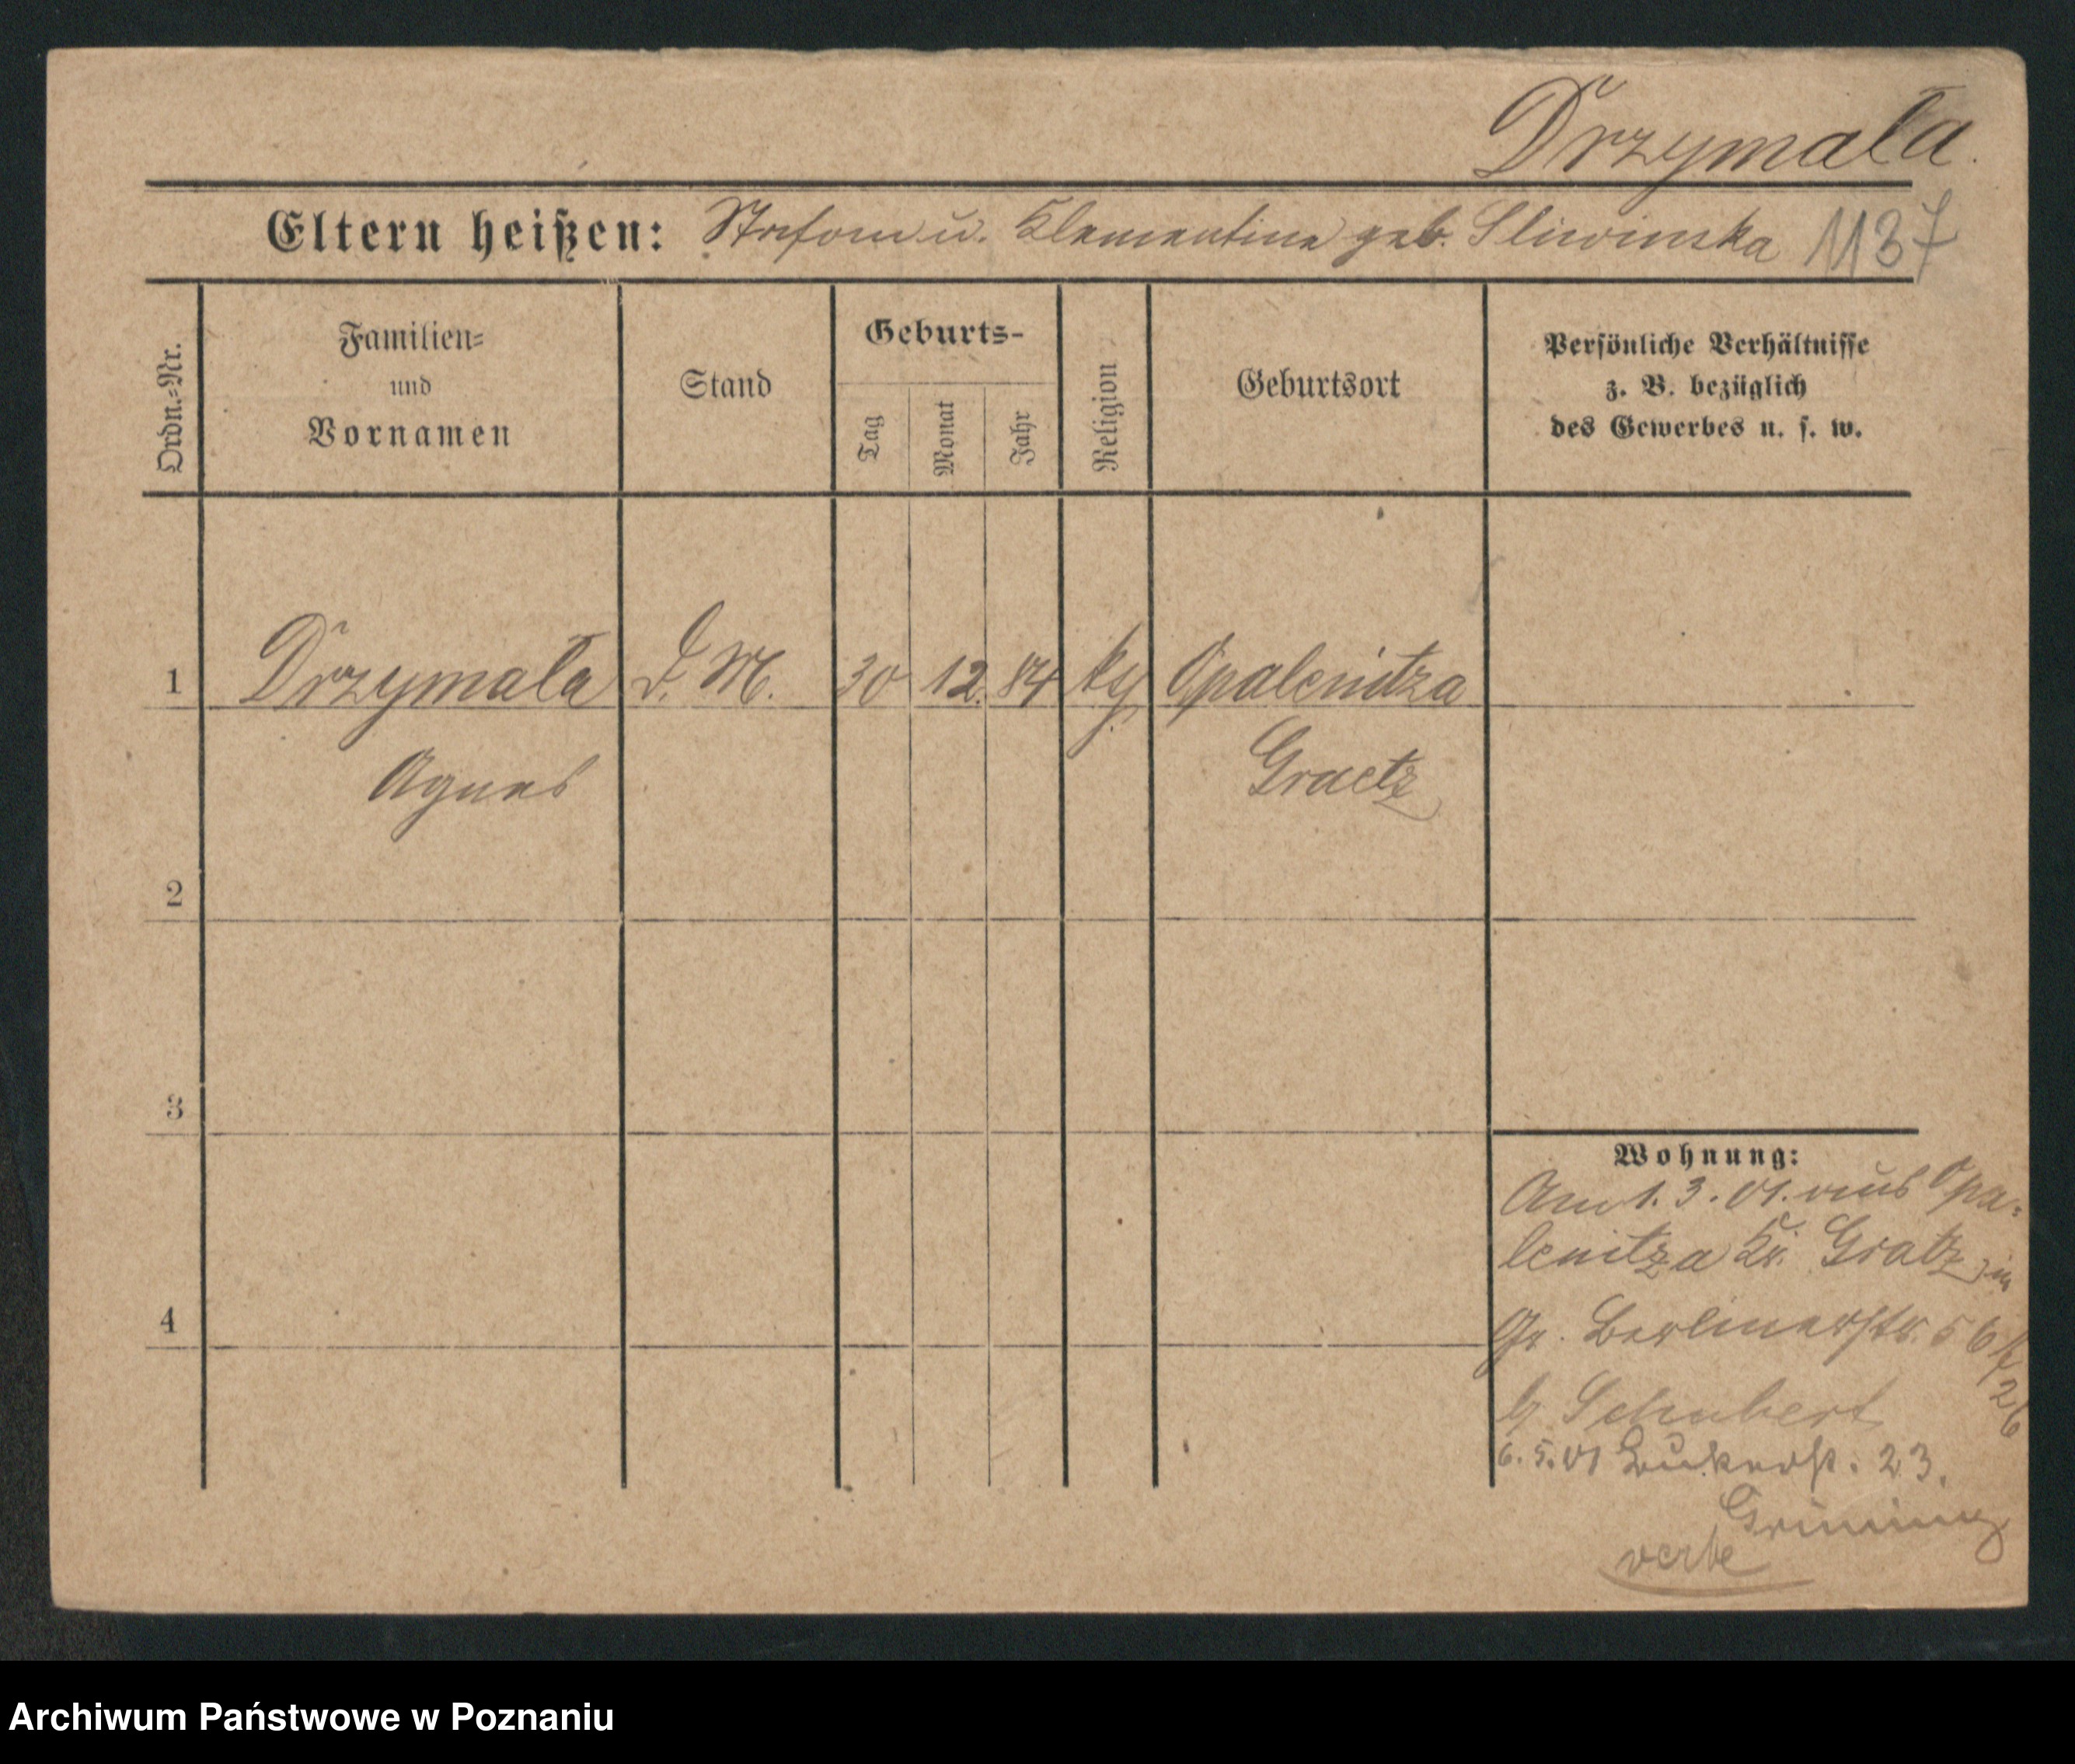 Drzymała.
Eltern heißen: Stefan u. Klementine geb. Sliwinska 1137
Ordn.=Nr.
Familien=
und
Vornamen
Stand
Geburts-
Tag
Monat
Jahr
Religion
Geburtsort
Persönliche Verhältnisse
z. B. bezüglich
des Gewerbes u. s. w.
1 Drzymała D. M. 30 12. 84 kg Opalenitza
Agnes Graetz
2
3
4
Wohnung:
Am 1. 3. 01. aus Opa=
lenitza Kr. Gratz in
Gr. Berlinerstr. 56
b/ Schubert
6. 5. 01 23.
Grüning
Archiwum Państwowe w Poznaniu